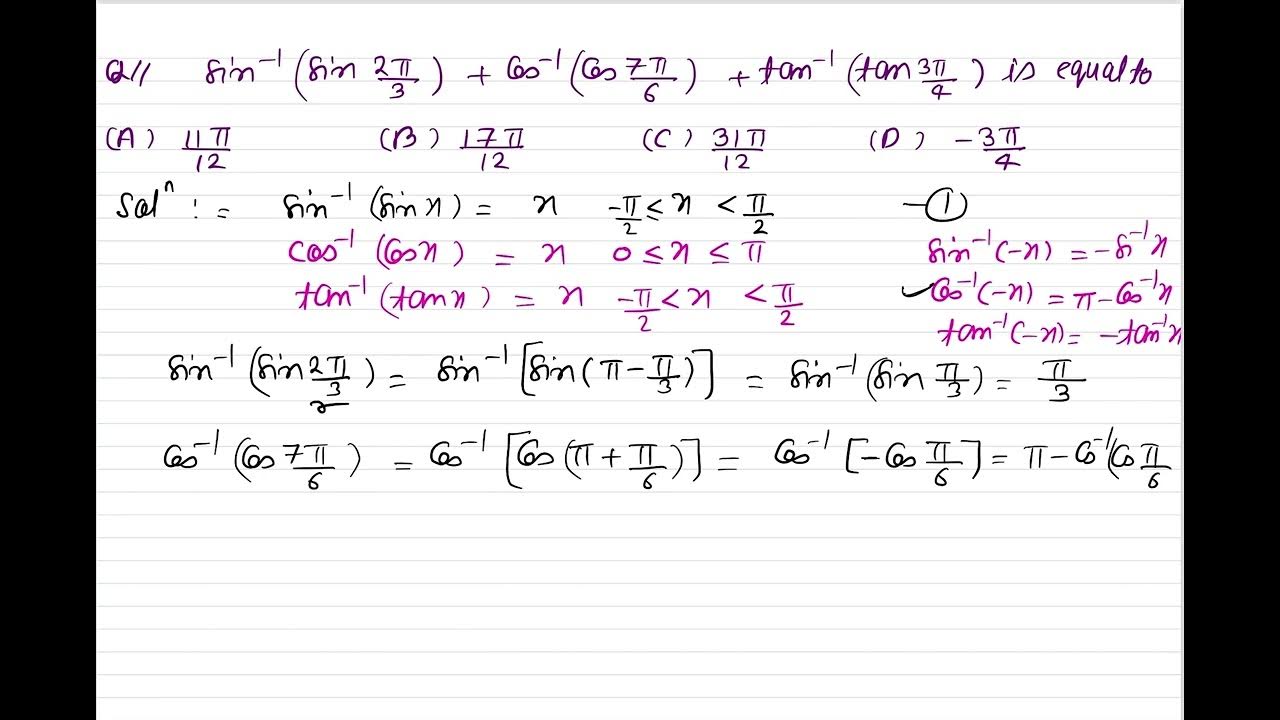 Q// sin⁻¹(sin 2π/3) + Cos⁻¹(Cos 7π/6) + tan⁻¹(tan 3π/4) is equal to
(A) 11π/12 (B) 17π/12 (C) 31π/12 (D) -3π/4
Solⁿ := sin⁻¹(sin x) = x -π/2 ≤ x < π/2 -①
cos⁻¹(Cos x) = x 0 ≤ x ≤ π sin⁻¹(-x) = -s⁻¹x
tan⁻¹(tan x) = x -π/2 < x < π/2 ✓Cos⁻¹(-x) = π - Cos⁻¹x
tan⁻¹(-x) = -tan⁻¹x
sin⁻¹(sin 2π/3) = sin⁻¹[sin(π - π/3)] = sin⁻¹(sin π/3) = π/3
Cos⁻¹(Cos 7π/6) = Cos⁻¹[Cos(π + π/6)] = Cos⁻¹[-Cos π/6] = π - Cos⁻¹(Cos π/6